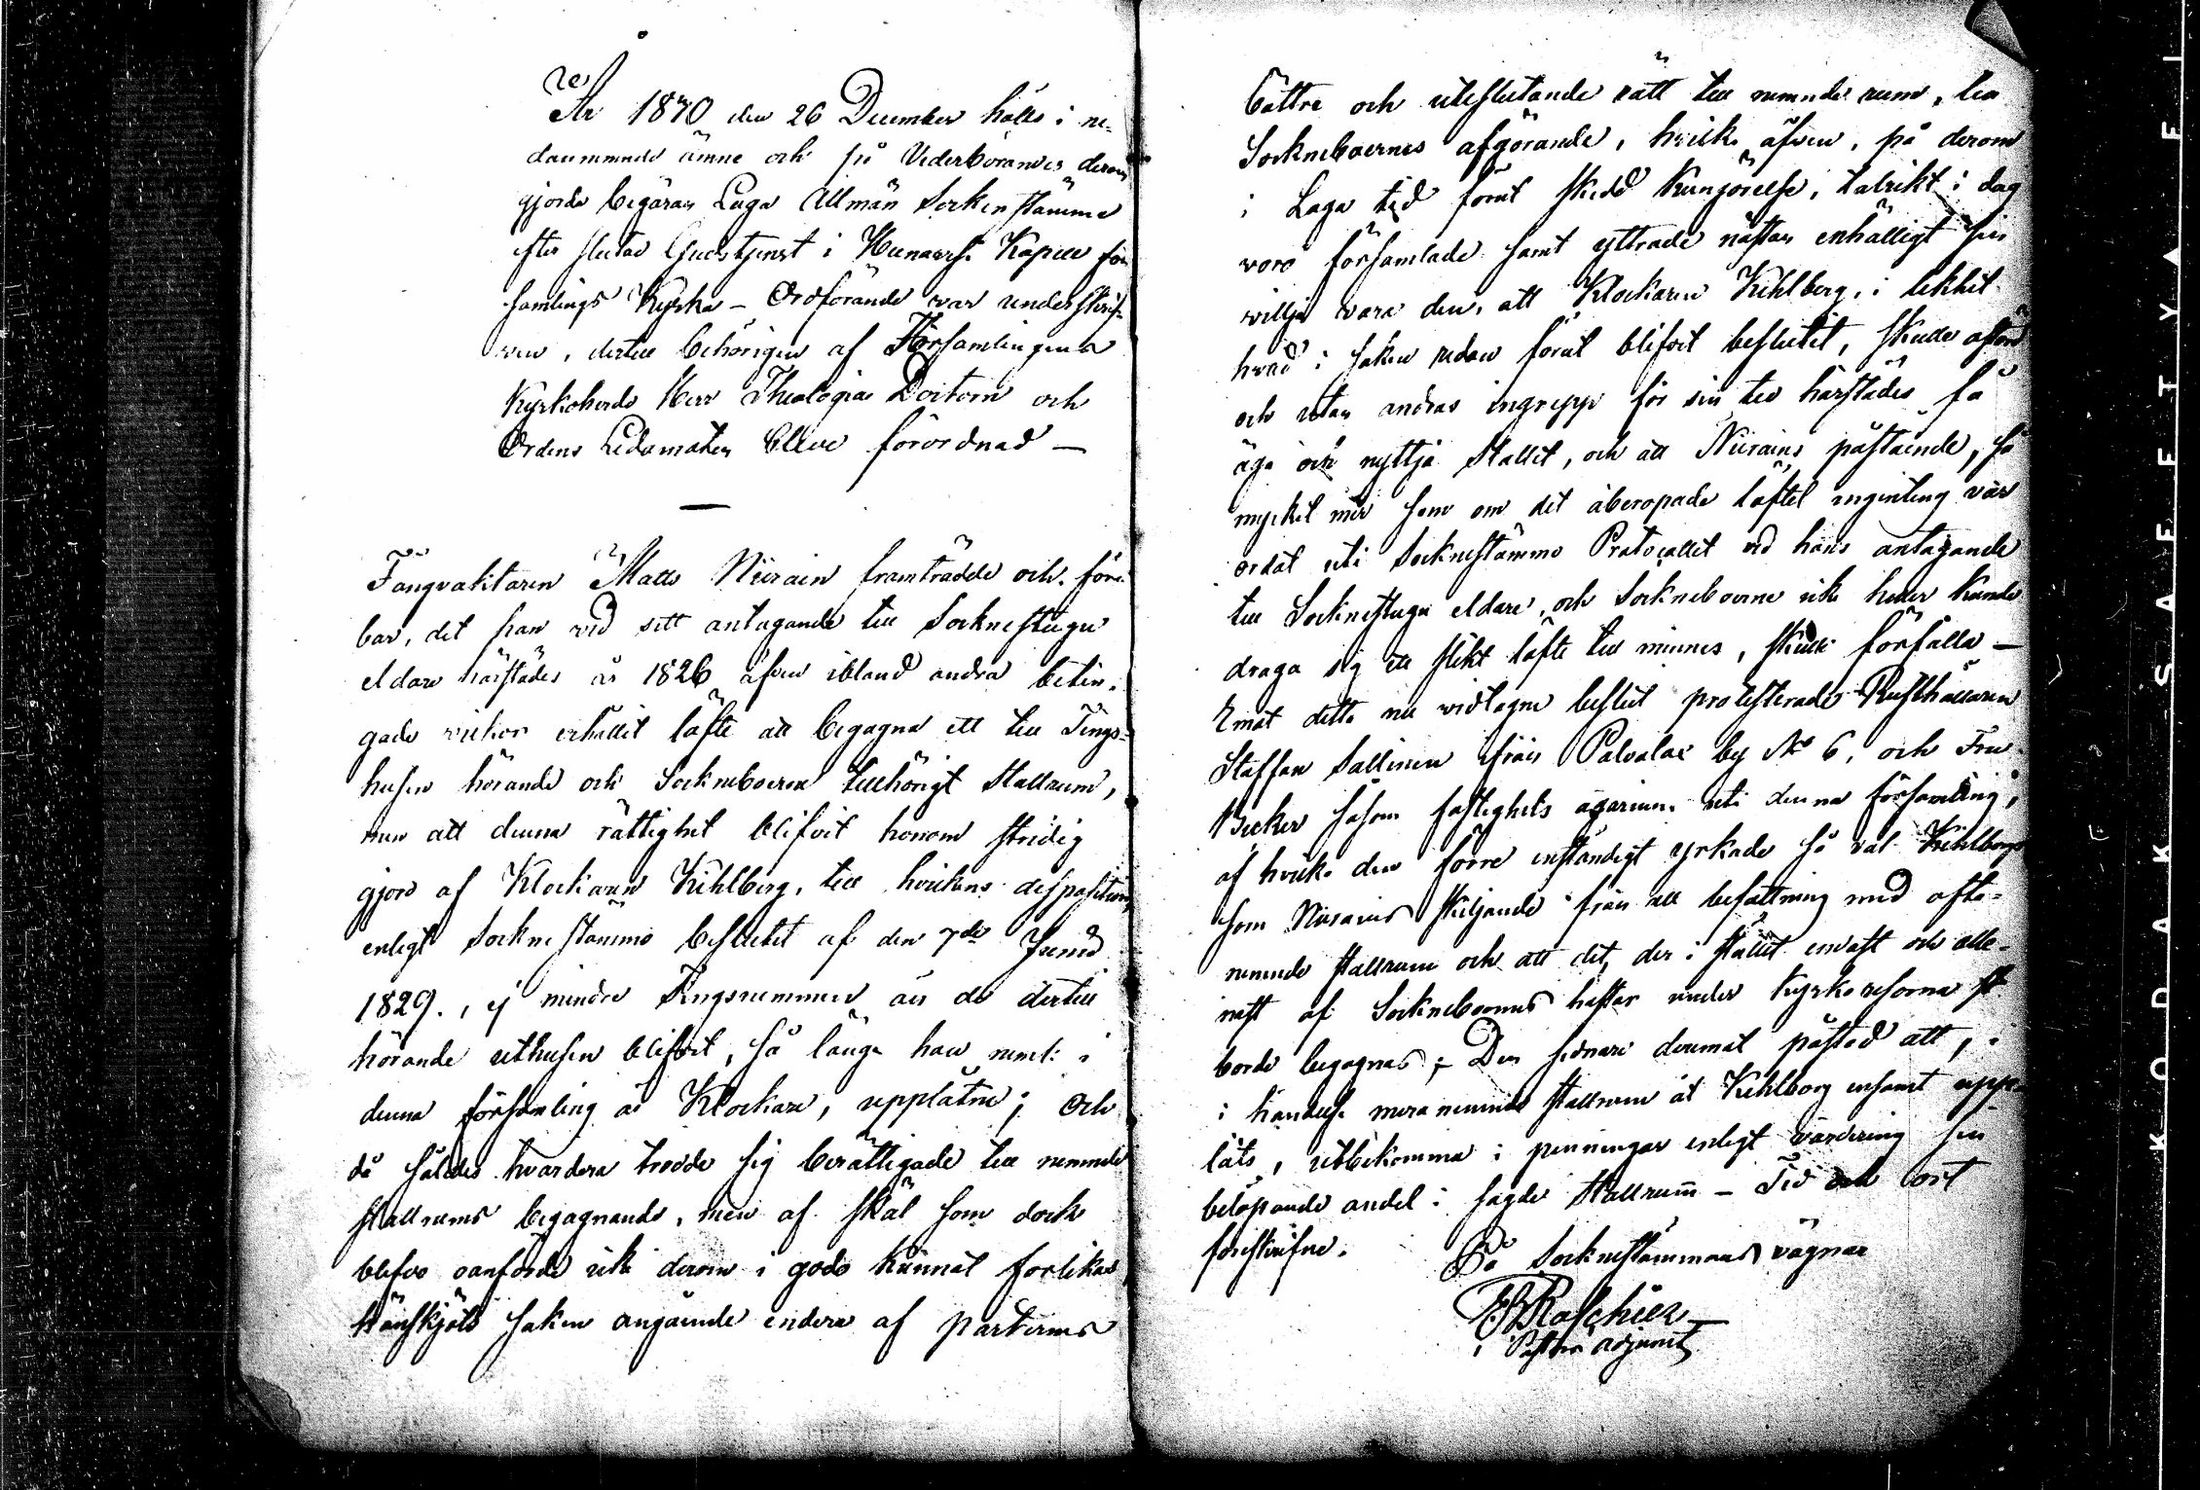 År 1830 den 26 December hölls i ne-
dannämnde ämne och på Vederbörandes derom
gjorde begäran Laga Allmän Sockenstämma
efter slutad Gudstjenst i Kapell för-
samlings Kyrka – Ordförande var underskrif-
ven, dertill behörigen af Församlingens
Kyrkoherde Herr Theologiæ Doctorn och
Ordens Ledamoten förordnad –
Fångvaktaren Matts Niirain framträdde och före-
bar, det han vid sitt antagande till Sockenstugu
eldare härstädes år 1826 äfven ibland andra betin-
gade vilkor erhållit löfte att begagna ett till Tings-
husen hörande och Sockneboerne tillhörigt Stallrum,
men att denna rättighet blifvit honom stridig
gjord af Klockaren Kihlberg, till hvilkens disposition
enligt Sockne stämmo beslutet af den 7de Junii
1829., ej mindre Tingsrummen än de dertill
hörande uthusen blifvit, så länge han neml: i
denna församling är Klockare, upplåtne; Och
då således hvardera trodde sig berättigade till nemnde
Stallrums begagnande, men af skäl som dock
blefvo oanförde icke derom i godo kunnat förlikas
hänskjöts saken angående endera af parternes
bättre och uteslutande rätt till nemnde rum, till
Sockneboernes afgörande, hvilke äfven, på derom
i Laga tid förut skedd Kungörelse, talrikt i dag
voro församlade samt yttrade nästan enhälligt sin
vilja vara den, att Klockaren Kihlberg, i likhet
hvad i saken redan förut blifvit beslutit, skulle
och utan andras ingrepp för sin tid härstädes få
äga och nyttja Stallet, och att Niirains påstående, så
mycket mer som om det åberopade löftet ingenting var
ordat uti Socknestämmo Protocollet vid hans antagande
till Socknestugu eldare, och Sockneboerne icke heller kunde
draga sig ett slikt löfte till minnes, skulle förfalla –
Emot detta nu vidtagne beslut protesterade Rusthållaren
Staffan Sallinen från by No 6, och Fru
Becker såsom fastighets ägarinna uti denna församling,
af hvilke den förre enständigt yrkade så väl Kihlbergs
som Niirains skiljande från all befattning med ofta-
nemnde Stallrum och att det, der i Stället endast och alle-
nast af Sockneboernes hästar under Kyrkoresorna
borde begagnas; – Den sednare deremot påstod att, i
i händelse mera nemnde Stallrum åt Kihlberg ensamt upp-
låts, utbekomma i penningar enligt värdering sin
belöpande andel i sagde Stallrum – Tid och ort
förskrifne.
På Socknestämmans vägnar
Roschier
Pastors adjunct